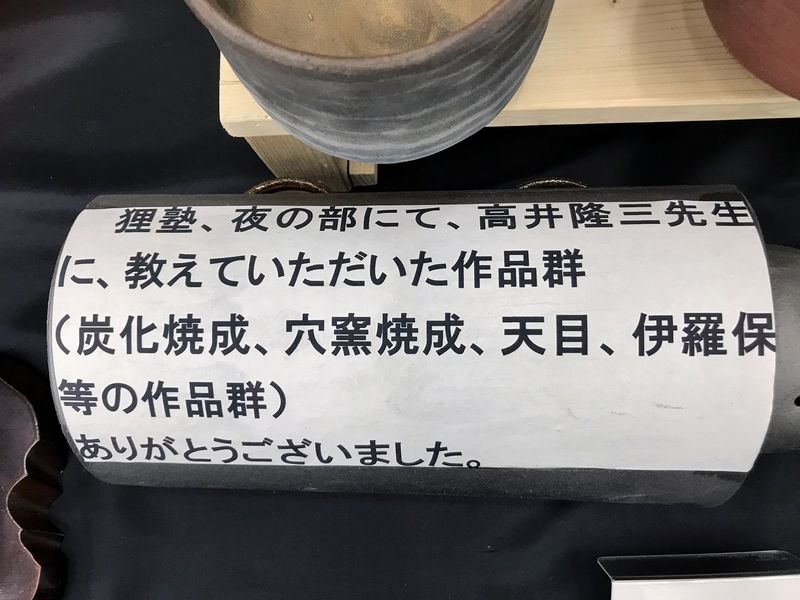 狸塾、夜の部にて、高井隆三先生
に、教えていただいた作品群
（炭化焼成、穴窯焼成、天目、伊羅保
等の作品群）
ありがとうございました。